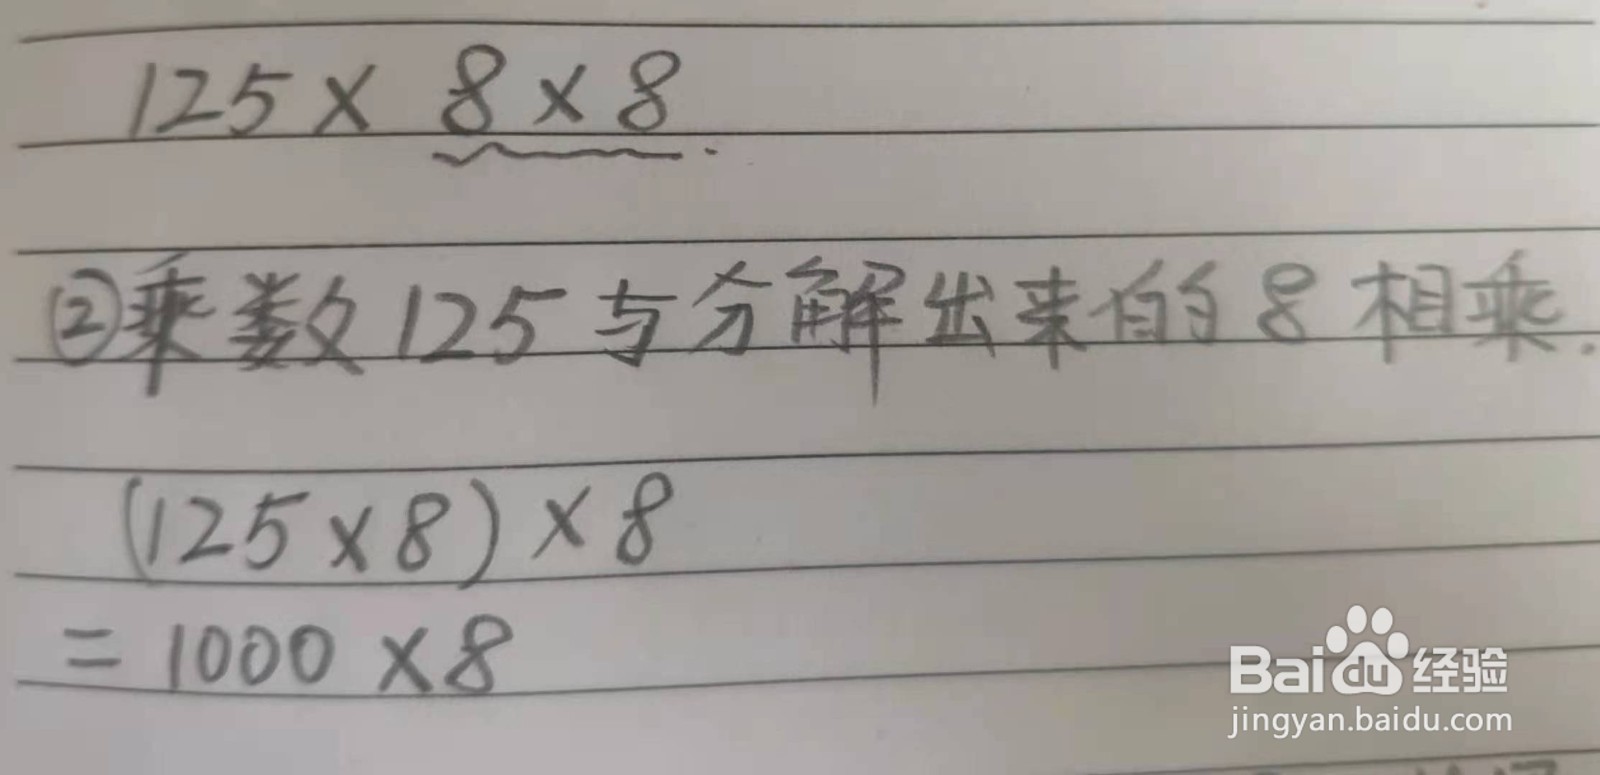 125 × 8 × 8.
②乘数125与分解出来的8相乘.
(125×8)×8
=1000×8
Baidu经验
jingyan.baidu.com